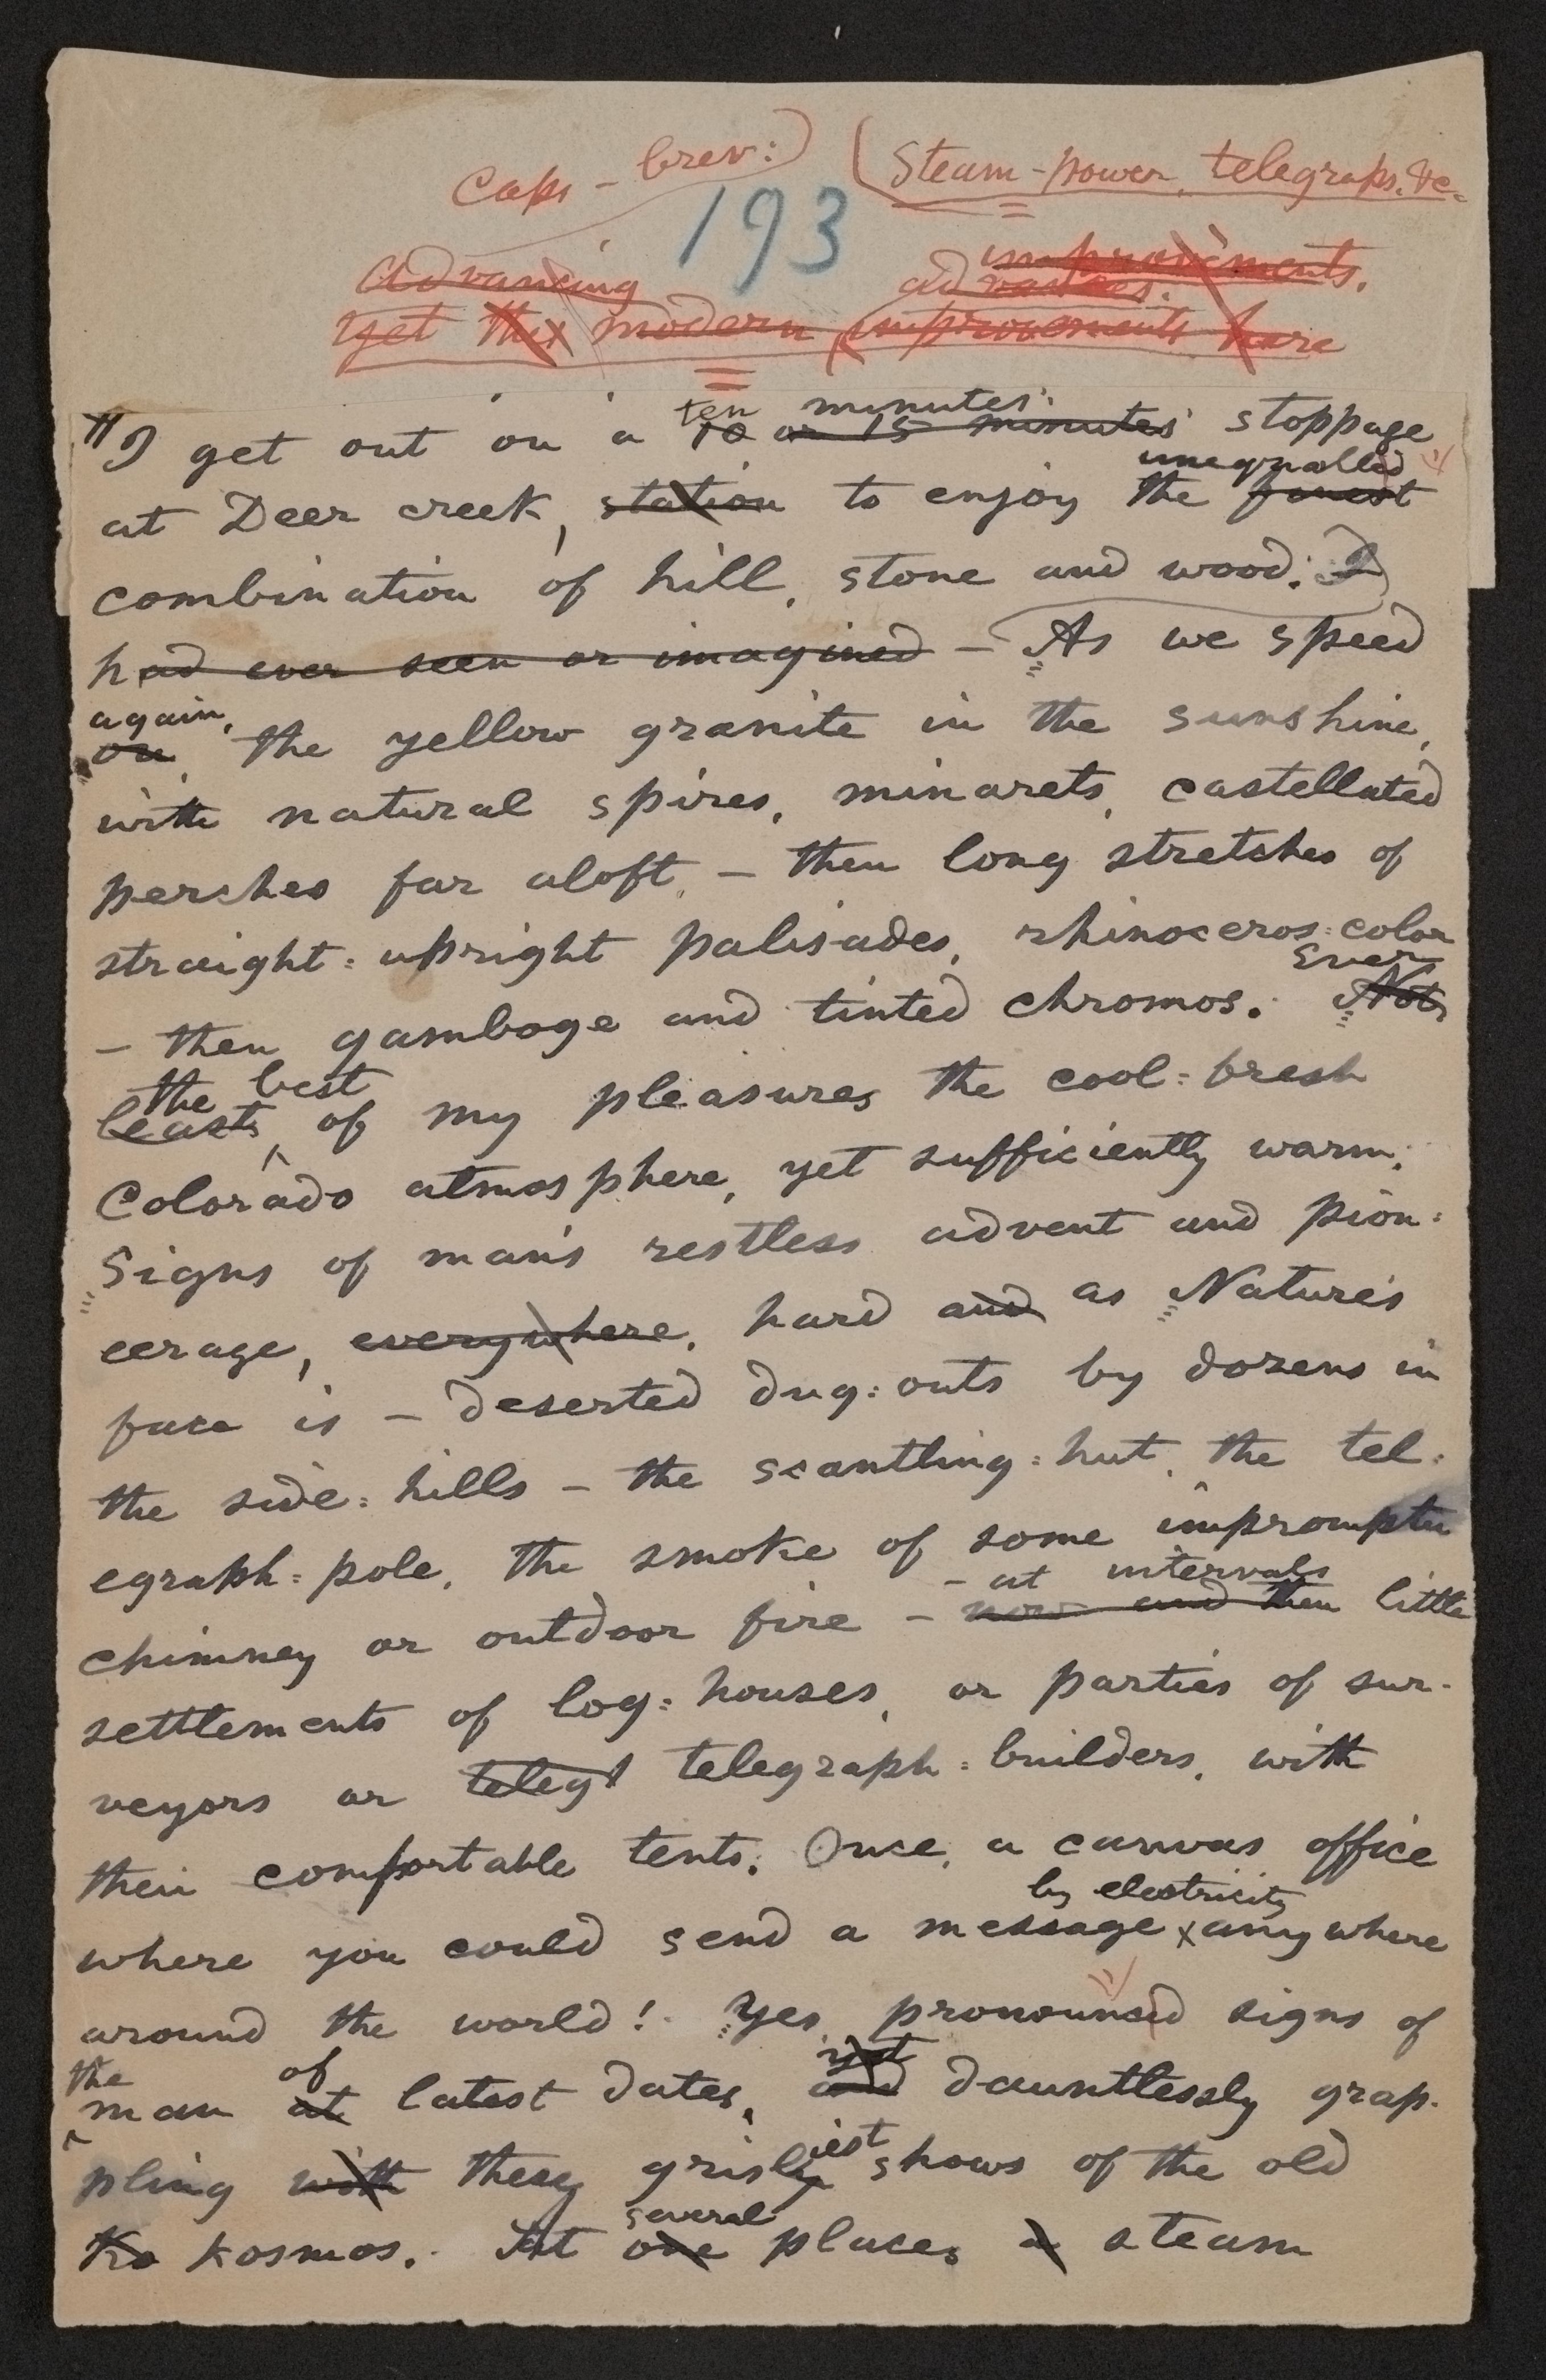 Caps - brev:) (Steam-power, telegraphs, &c.
193
improvements.
Advancing advances.
Yet the modern improvements here
ten minutes'
"I get out on a 10 or 15 minutes' stoppage
unequalled
at Deer creek, station to enjoy the finest
combination of hill, stone and wood. I
had ever seen or imagined — As we speed
again,
on, the yellow granite in the sunshine,
with natural spires, minarets, castellated
perches far aloft, — then long stretches of
straight-upright palisades, rhinoceros-color
Ever
— then gamboge and tinted chromos. Not
the best
least, of my pleasures the cool-fresh
Colorado atmosphere, yet sufficiently warm.
Signs of man's restless advent and pion-
eerage, everywhere, hard and as Nature's
face is — deserted dug-outs by dozens in
the side-hills — the scantling-hut, the tel-
egraph-pole, the smoke of some impromptu
- at intervals
chimney or outdoor fire — now and then little
settlements of log-houses, or parties of sur-
veyors or telegr telegraph-builders, with
their comfortable tents. Once, a canvas office
by electricity
where you could send a message anywhere
around the world! Yes, pronounced signs of
the of yet
man at latest dates, and dauntlessly grap-
iest
pling with these grisly shows of the old
several
Ko kosmos. At one places a steam